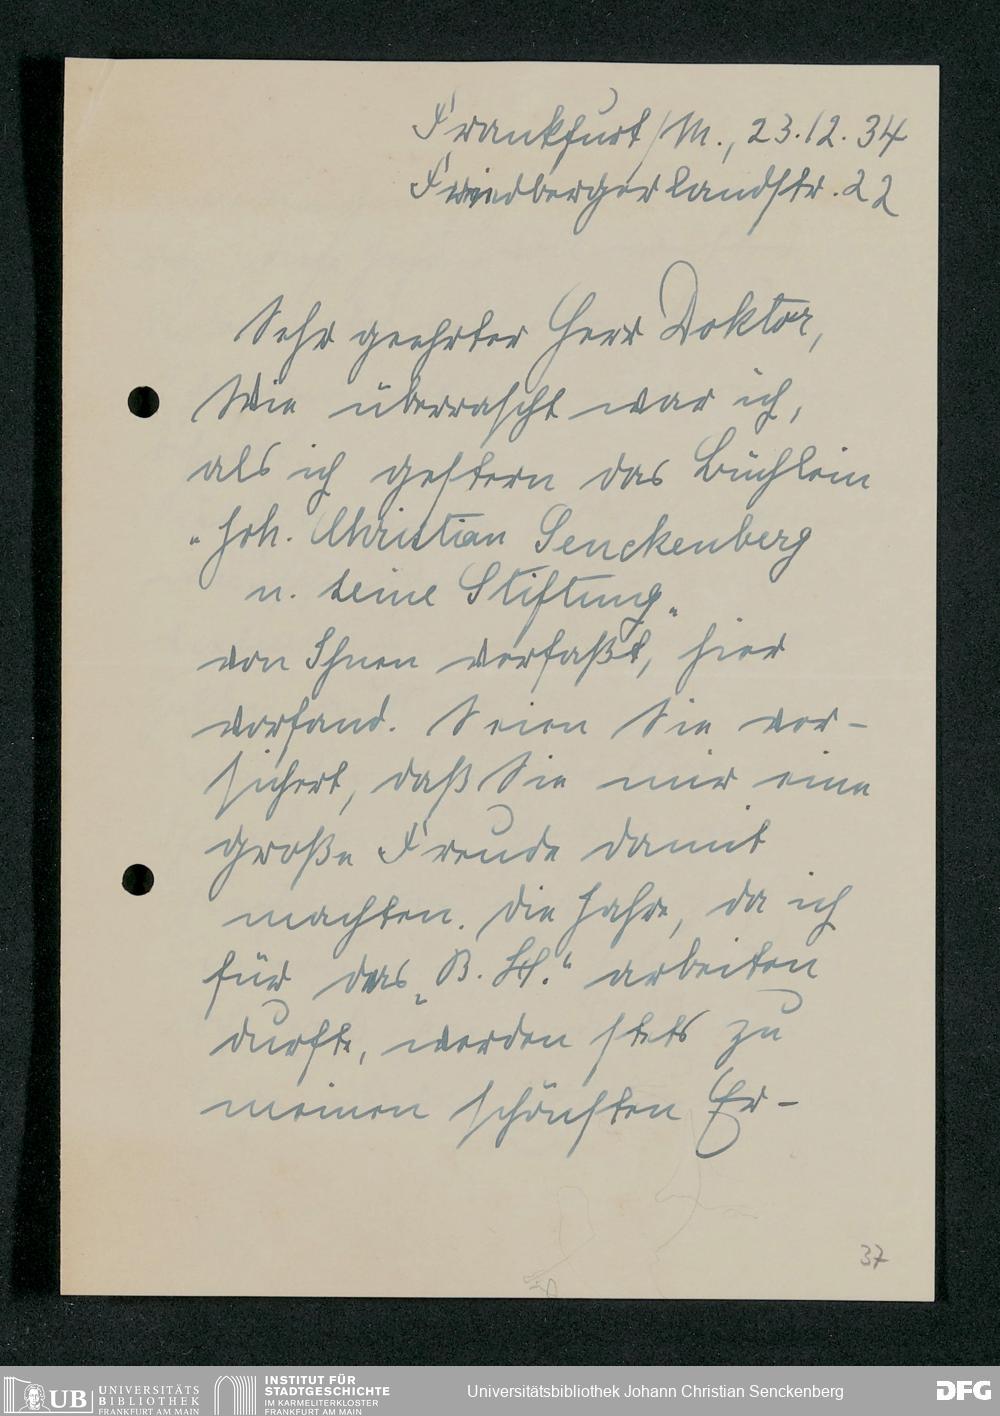 Frankfurt/M., 23.12.34
Friedberger Landstr. 22
Sehr geehrter Herr Doktor,
Wie überrascht war ich,
als ich gestern das Büchlein
"Joh. Christian Senckenberg
u. seine Stiftung"
von Ihnen verfaßt, hier
vorfand. Seien Sie ver-
sichert, daß Sie mir eine
große Freude damit
machten. Die Jahre, da ich
für das „B. H." arbeiten
durfte, werden stets zu
meinen schönsten Er-
37
UB UNIVERSITÄTS
BIBLIOTHEK
FRANKFURT AM MAIN
INSTITUT FÜR
STADTGESCHICHTE
IM KARMELITERKLOSTER
FRANKFURT AM MAIN
Universitätsbibliothek Johann Christian Senckenberg
DFG